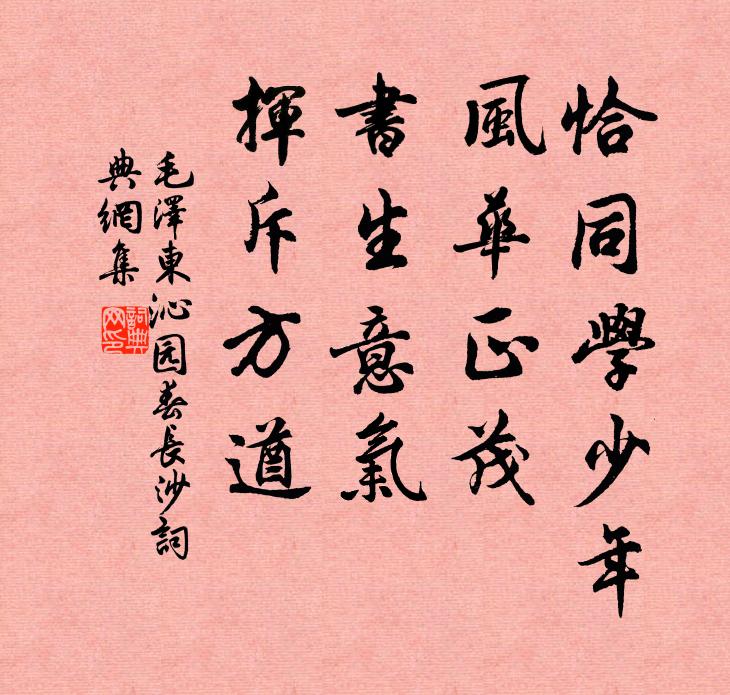 恰同學少年
風華正茂
書生意氣
揮斥方遒
毛澤東沁园春長沙詞
典網集
詞典
网印